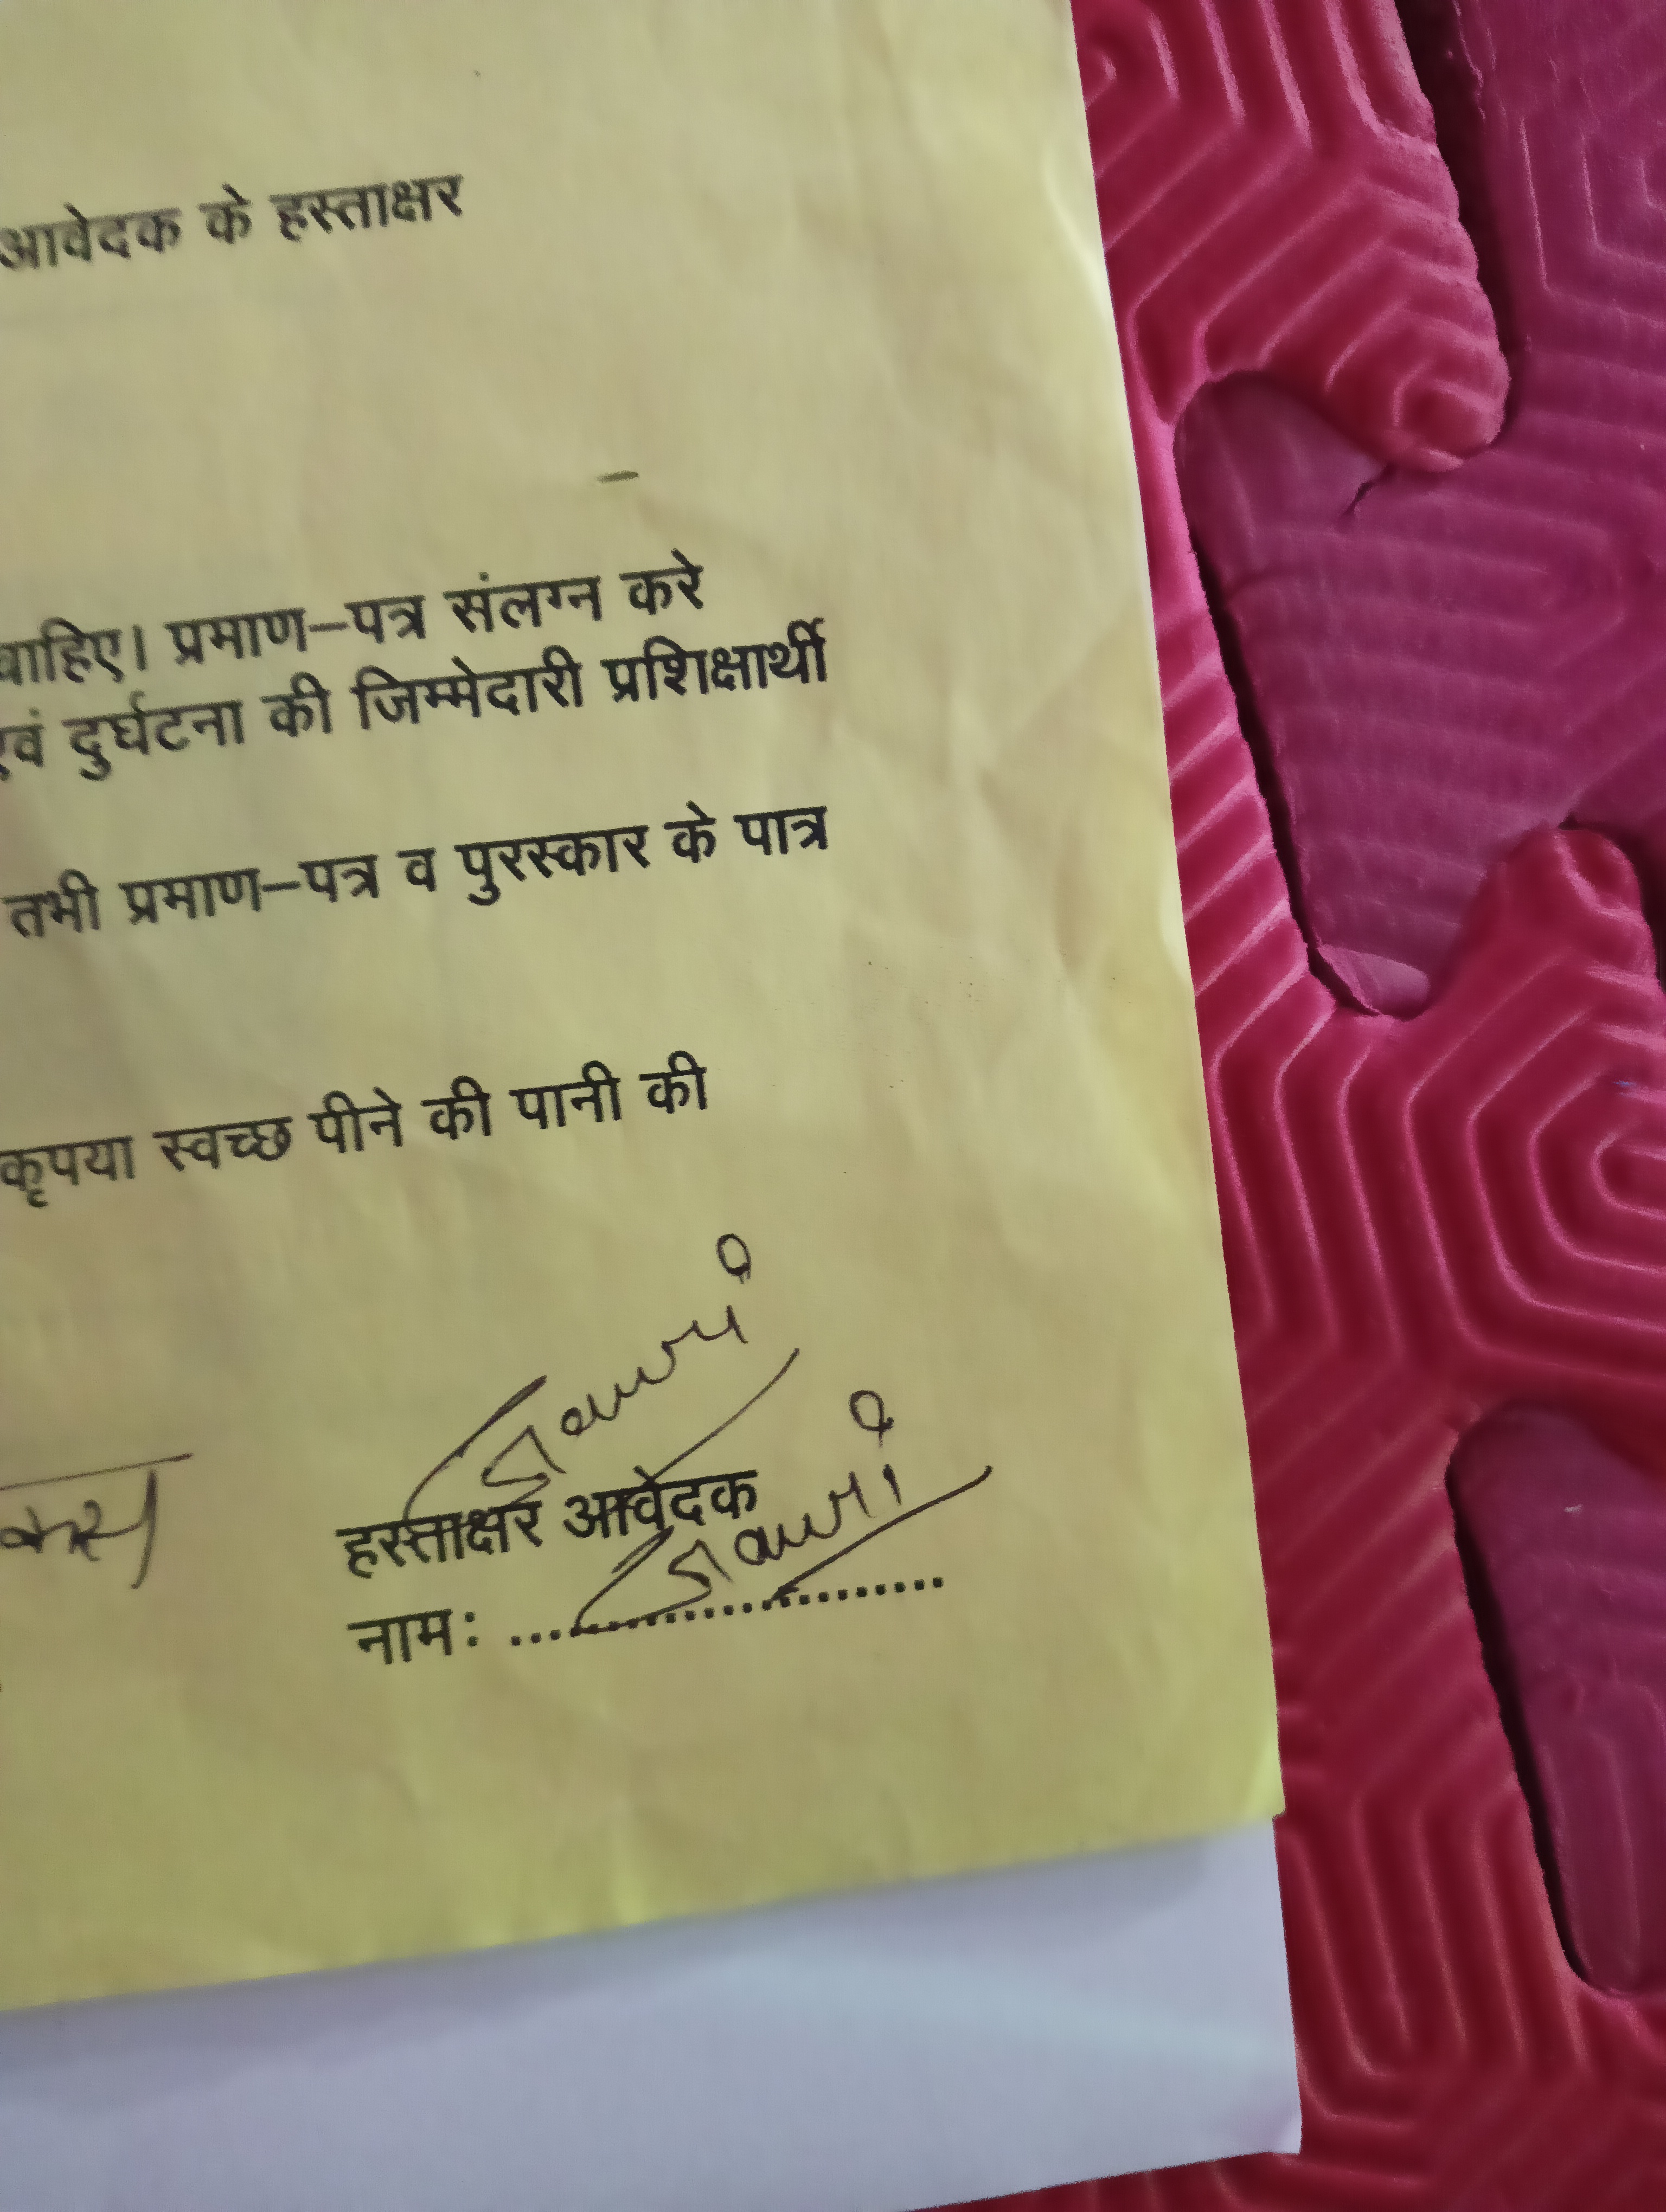 आवेदक के हस्ताक्षर
चाहिए। प्रमाण–पत्र संलग्न करे
एवं दुर्घटना की जिम्मेदारी प्रशिक्षार्थी
तभी प्रमाण–पत्र व पुरस्कार के पात्र
कृपया स्वच्छ पीने की पानी की
Gauri
हस्ताक्षर आवेदक
नामः ........................ Gauri